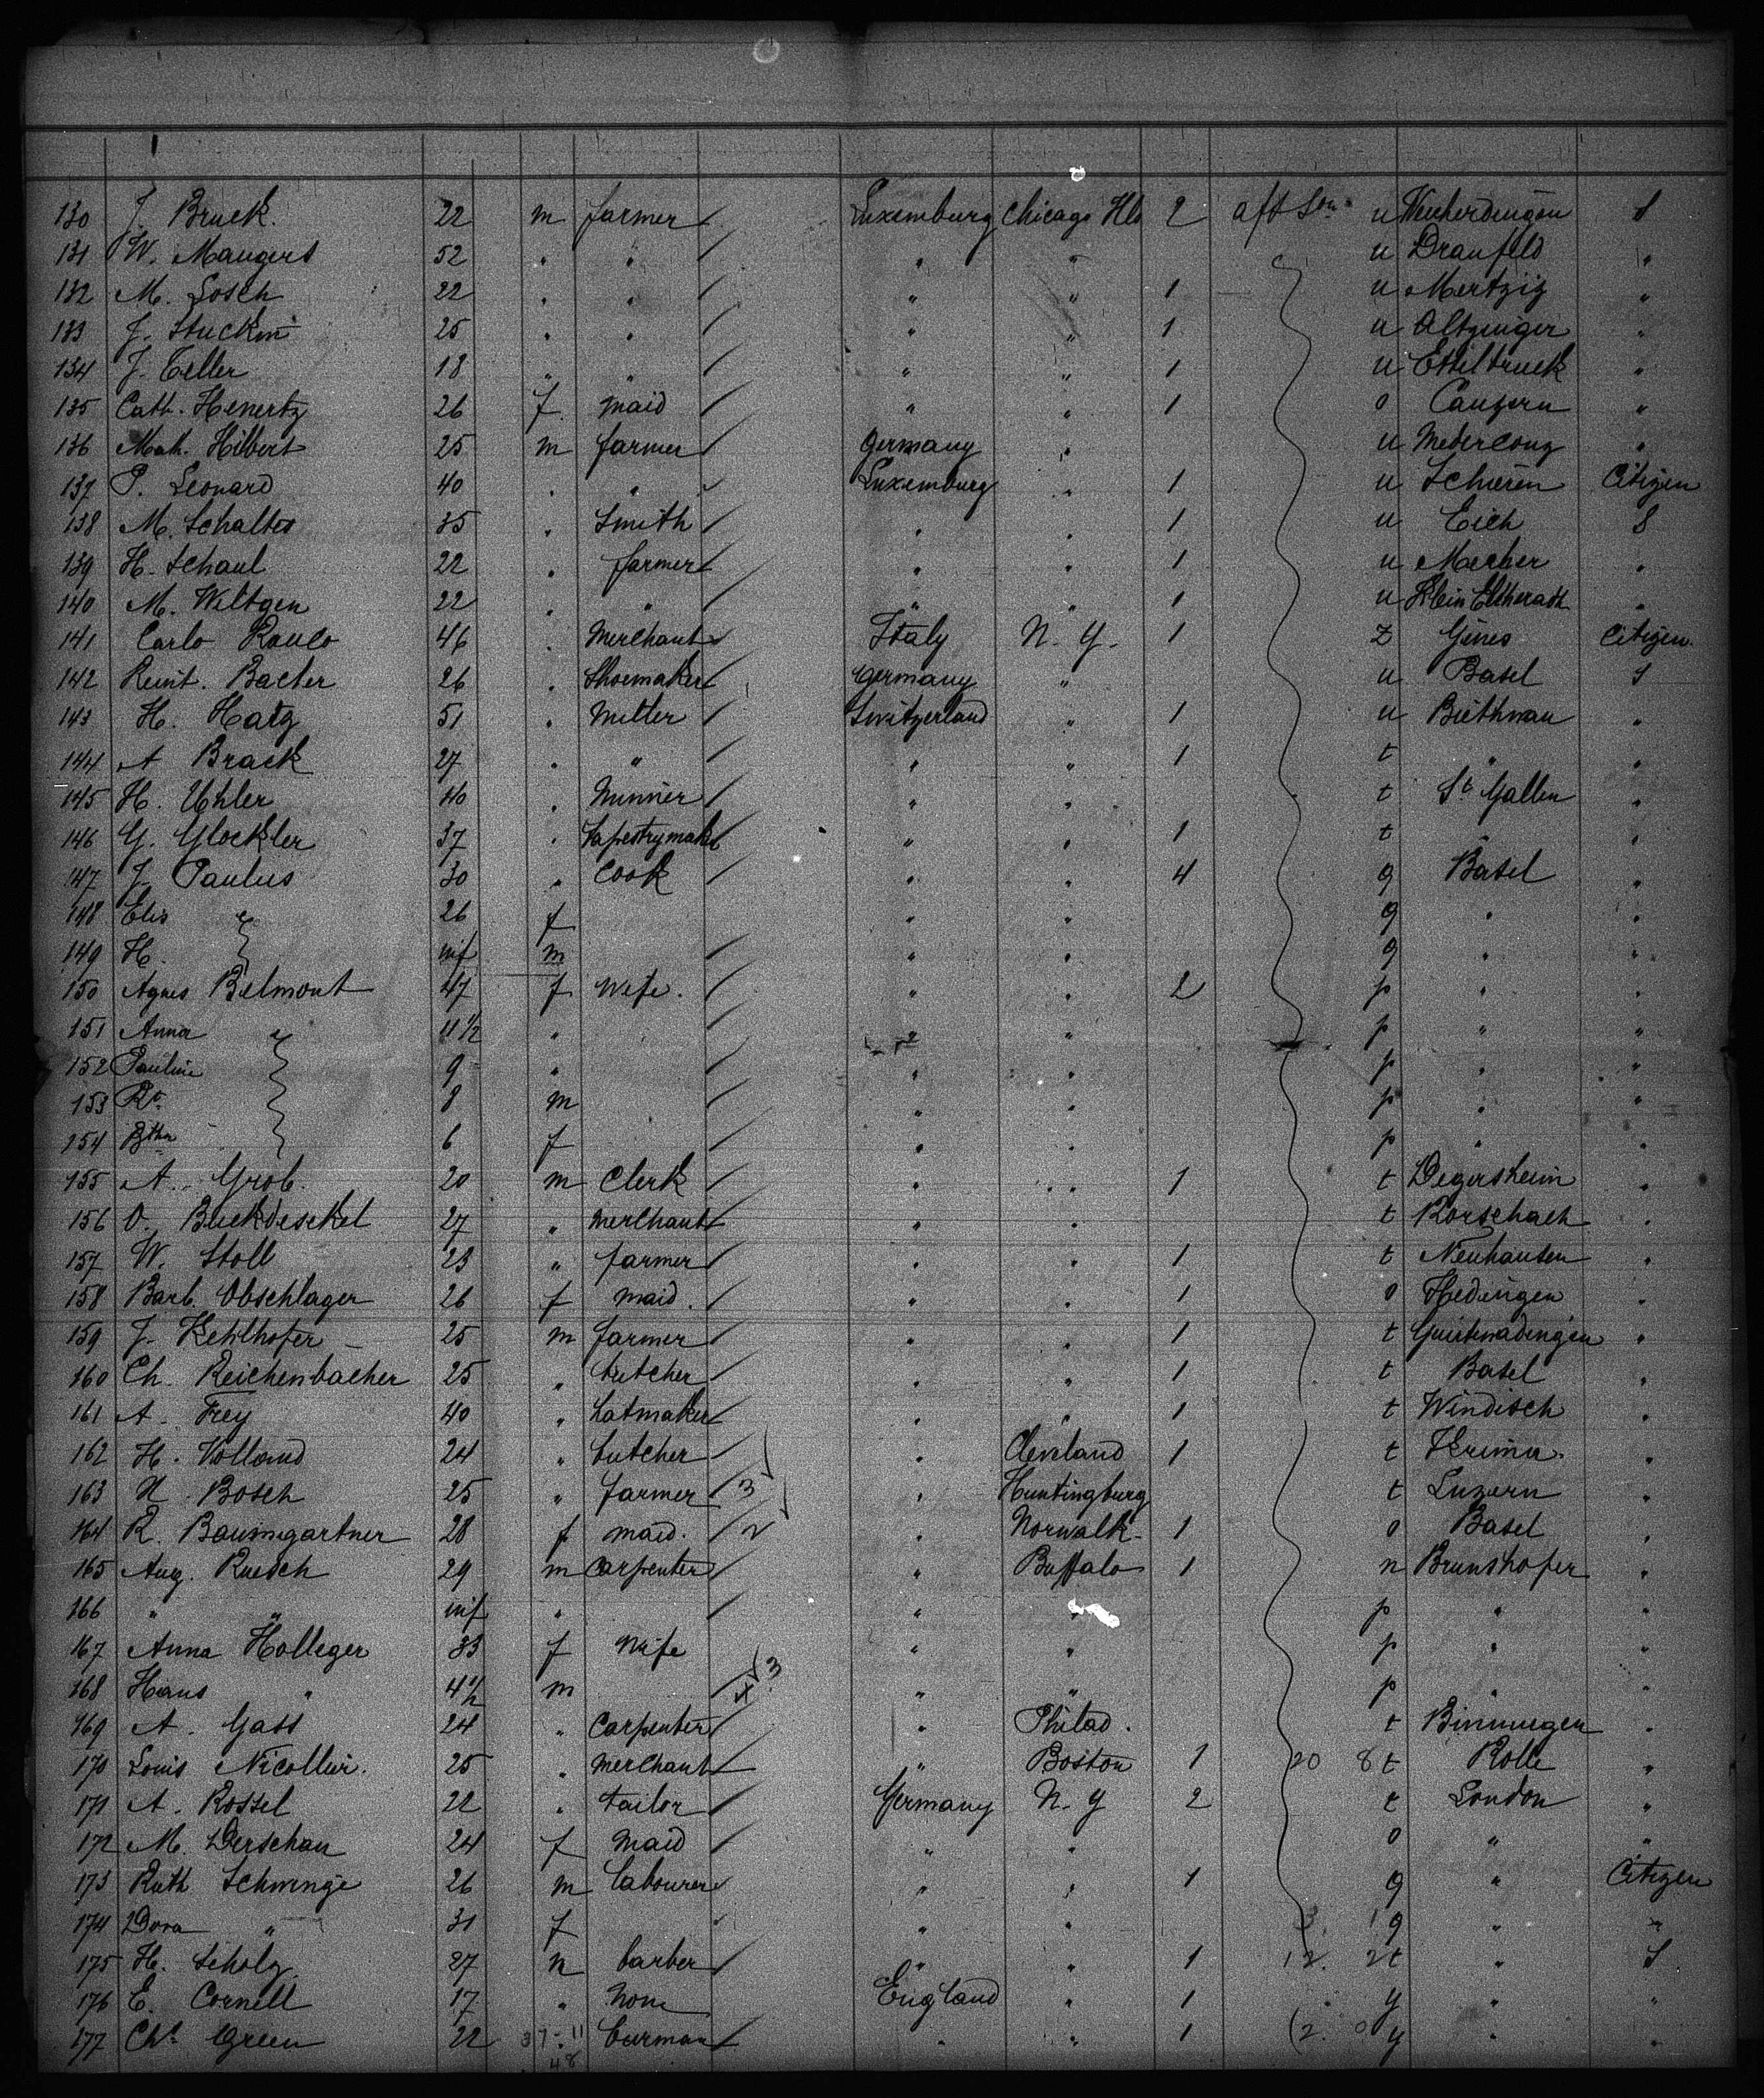 130 J. Bruck. 22 m farmer Luxemburg Chicago Ills 2 aft u S
131 W. Maugers 52 " " " " u Draufeld "
132 M. Losch 22 " " " " 1 u Mertzig "
133 J. 25 " " " " 1 u "
134 J. Teller 18 " " " " 1 u Ettelbruck "
135 Cath. Henertz 26 f. maid " " 1 o "
136 Math. Hilbert 25 m farmer Germany " u "
137 P. Leonard 40 " " Luxemburg " 1 u Schieren Citizen
138 M. Schaltes 35 " Smith " " 1 u Eich S
139 H. Schaul 22 " farmer " " 1 u Mercher "
140 M. Wiltgen 22 " " " " 1 u Klein "
141 Carlo 46 " Merchant Italy N. Y. 1 z Gênes Citizen.
142 26 " Shoemaker Germany " u Basel S
143 H. Hatz 51 " Miller Switzerland " 1 u "
144 A Brack 27 " " " " 1 t " "
145 H. Uhler 40 " " " t St Gallen "
146 G. Glockler 37 " Tapestrymaker " " 1 t " "
147 J. Paulus 30 " Cook " " 4 g Basel "
148 Elis " 26 f " " g " "
149 H. inf m " " g " "
150 Agnes Belmont 47 f Wife. " " 2 p " "
151 Anna " 4 1/2 " " " p " "
152 Pauline 9 " " " p " "
153 8 m " " p " "
154 Btha 6 f " " p " "
155 A. Grob. 20 m Clerk " " 1 t Degersheim "
156 O. Buckdeschel 27 " Merchant " " t Rorschach "
157 W. Stoll 23 " farmer " " 1 t Neuhausen "
158 Barb. Obschlager 26 f maid. " " 1 o Hedingen "
159 J. Kehlhofer 25 m farmer " " 1 t "
160 Ch. Reichenbacher 25 " butcher " " 1 t Basel "
161 A. Frey 40 " hatmaker " " 1 t Windisch "
162 H. Volland 24 " butcher " Cleveland 1 t "
163 N. Bosch 25 " farmer 3 " Huntingburg t Luzern "
164 R. Baumgartner 28 f maid. 2 " Norwalk 1 o Basel "
165 Aug. Ruesch 29 m Carpenter " Buffalo 1 n Brunshofer "
166 " " inf " " " p " "
167 Anna Holleger 33 f Wife " " p " "
168 Hans " 4 1/2 m " " p " "
169 A. Gass 24 " Carpenter " Philad. t Binningen "
170 Louis Nicollier. 25 " Merchant " Boston 1 20 8 t Rolle "
171 A. Rossel 22 " tailor Germany N. Y 2 t London "
172 M. Derschau 24 f Maid " " o " "
173 Ruth Schwinge 26 m labourer " " 1 g " Citizen
174 Dora " 31 f " " 3. 1 g " "
175 H. Scholz 27 m barber " " 1 12. 2 t " S
176 E. Cornell 17 " None England " 1 y " "
177 Chs Green 22 37 - 11 " " 1 (2. 0 y " "
48